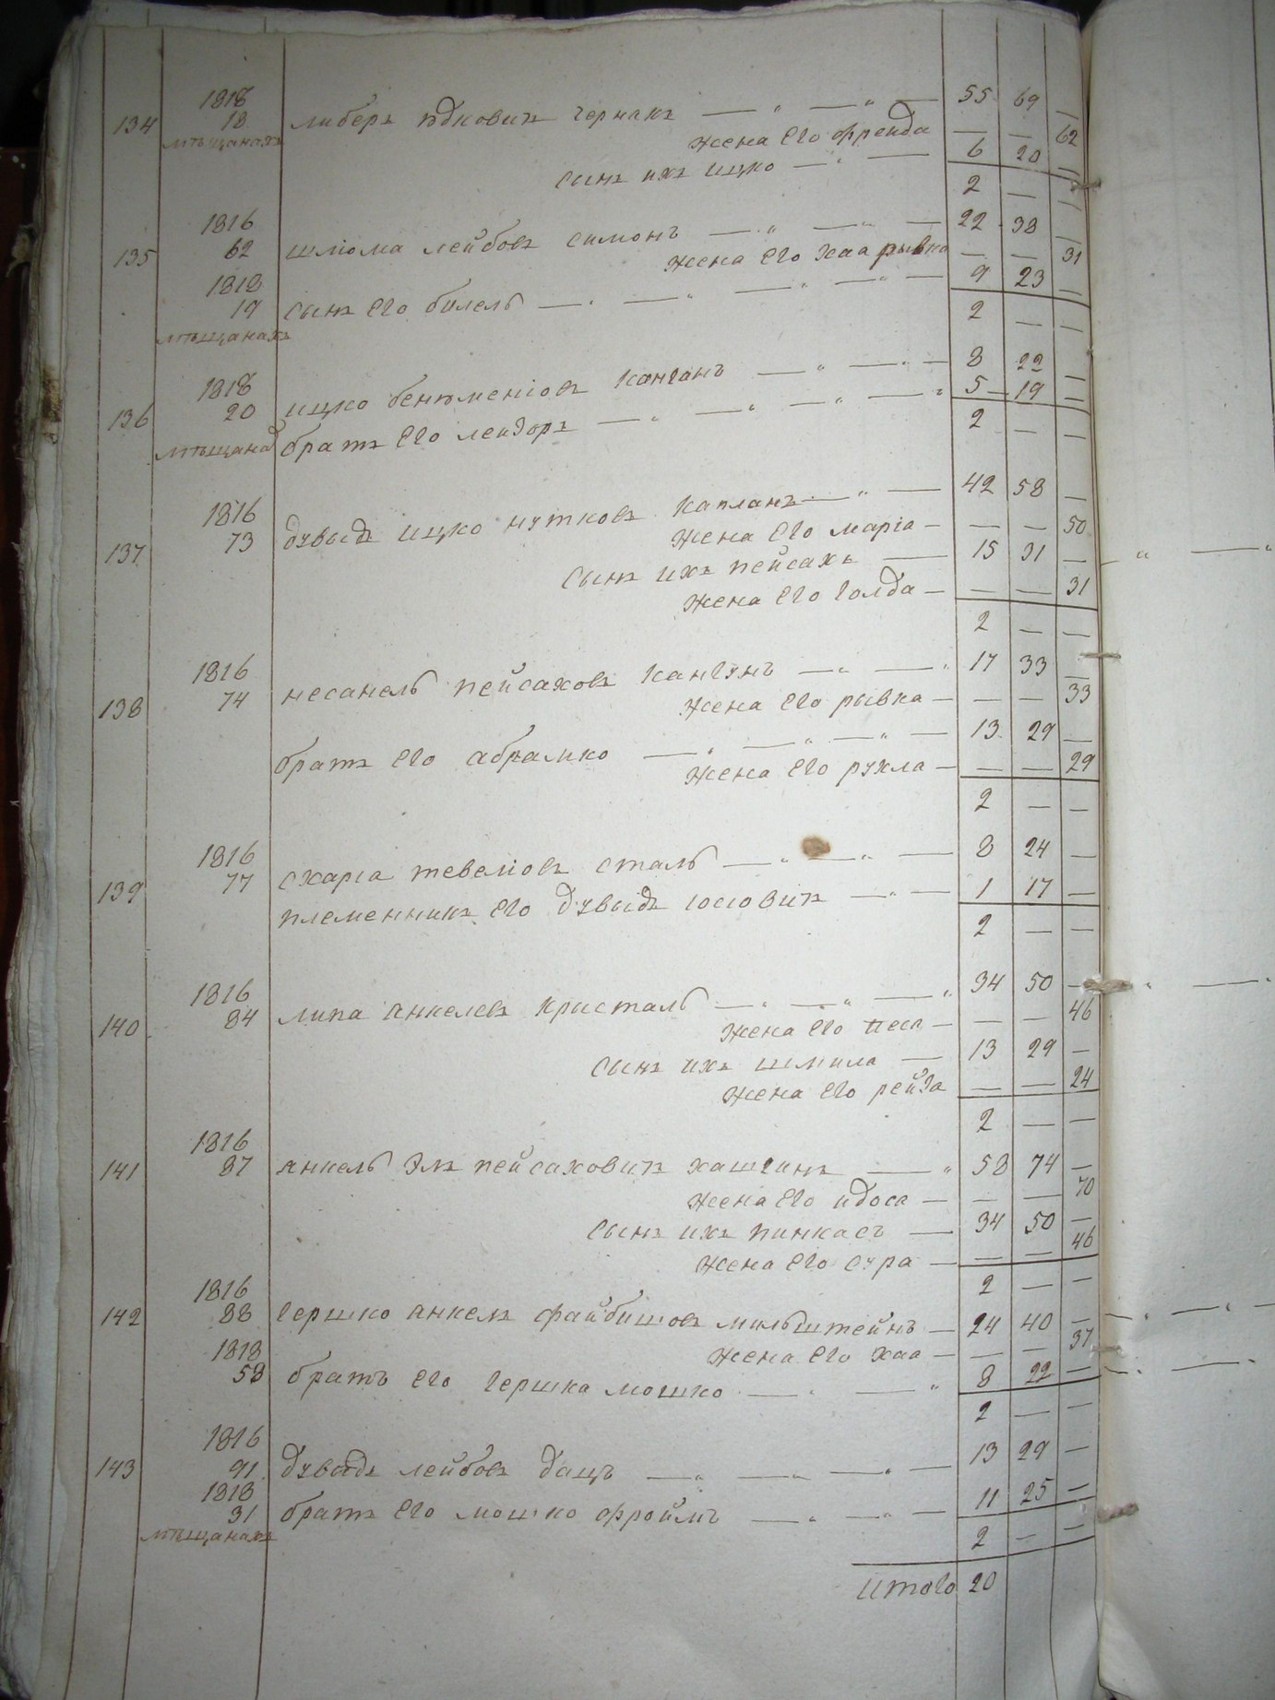 1818
134 18 либеръ ицковичъ чернакъ — „ — „ — 55 69 —
мѣщанахъ жена его фрейда — — 62
сынъ ихъ ицко — „ — 6 20 —
2 — —
1816
135 62 шліома лейбовъ симонъ — „ — „ — 22 38 —
жена его хаа рывка — — 31
1818
19 сынъ его билель — „ — „ — „ — „ — 9 23 —
мѣщанахъ 2 — —
1818
136 20 ицко бенѣменіовъ канганъ — „ — „ — 8 22 —
мѣщанах братъ его лейзоръ — „ — „ — „ — „ 5 19 —
2 — —
1816
137 73 дувыдъ ицко нутковъ капланъ — „ — 42 58 —
жена его маріа — — — 50
сынъ ихъ пейсахъ — 15 31 —
жена его голда — — — 31
2 — —
1816
138 74 несанель пейсаховъ кангунъ — „ — „ 17 33 —
жена его рывка — — — 33
братъ его абрамко — „ — „ — „ — 13 29 —
жена его рухла — — — 29
2 — —
1816
139 77 схаріа тевеліовъ сталь — „ — „ — 8 24 —
племенникъ его дувыдъ іосіовичъ — „ — 1 17 —
2 — —
1816
140 84 липа анкелевъ кристаль — „ — „ — „ 34 50 —
жена его песа — — — 46
сынъ ихъ шмила — 13 29 —
жена его рейза — — 24
2 — —
1816
141 87 янкель элъ пейсаховичъ хашчинъ — „ 58 74 —
жена его идоса — — — 70
сынъ ихъ пинкасъ — 34 50 —
жена его сура — — — 46
1816 2 — —
142 88 гершко анкелъ файбишовъ мильштейнъ — 24 40 —
1818 жена его хаа — — — 37
58 братъ его гершка мошко — „ — „ 8 22 —
2 — —
1816
143 91 дувыдъ лейбовъ дацъ — „ — „ — „ — 13 29 —
1818
31 братъ его мошко фроймъ — „ — „ — 11 25 —
мѣщанахъ 2 — —
итого 20